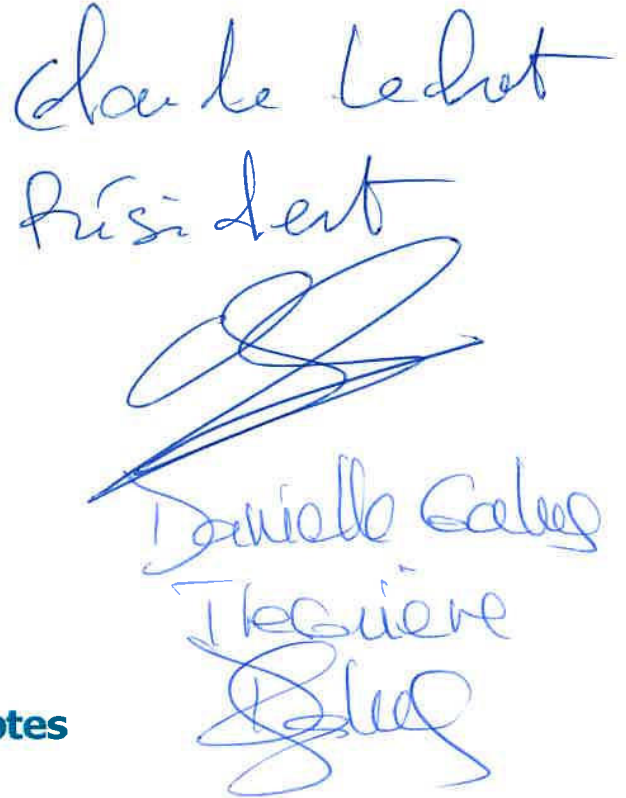 Claude Lechot
Président
Danielle
Trésorière
otes